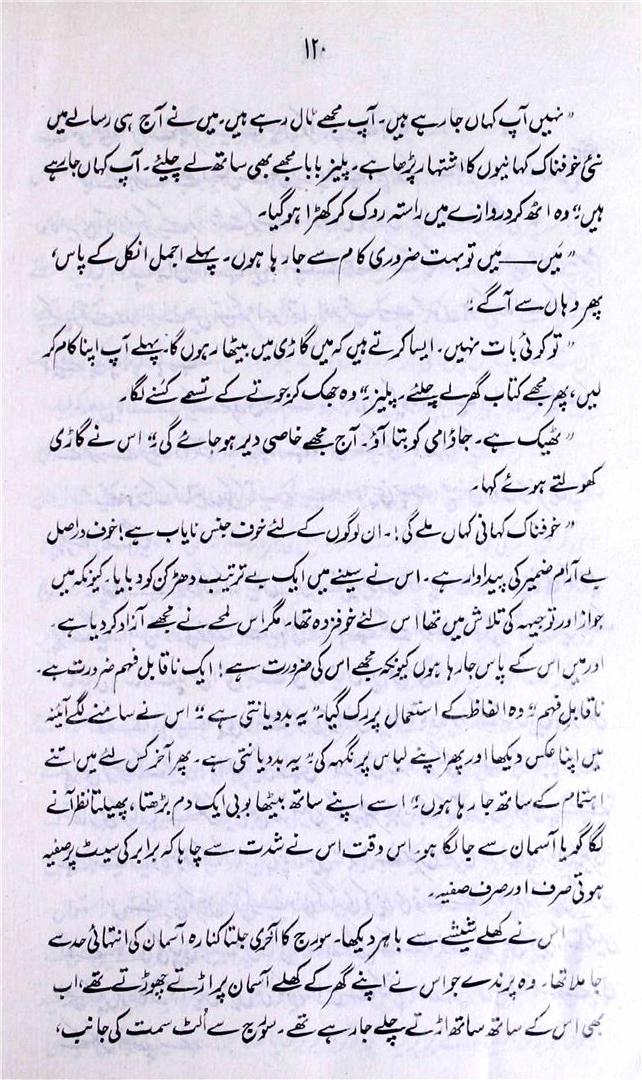 ۱۲۰
”نہیں آپ کہاں جا رہے ہیں۔ آپ مجھے ٹال رہے ہیں۔ میں نے آج ہی رسالے میں
نئی خوفناک کہانیوں کا اشتہار پڑھا ہے۔ پلیز بابا مجھے بھی ساتھ لے چلیئے۔ آپ کہاں جا رہے
ہیں؟“ وہ اٹھ کر دروازے میں راستہ روک کر کھڑا ہو گیا۔
”میں ــــــ میں تو بہت ضروری کام سے جا رہا ہوں۔ پہلے اجمل انکل کے پاس،
پھر وہاں سے آگے؛
”تو کوئی بات نہیں۔ ایسا کرتے ہیں کہ میں گاڑی میں بیٹھا رہوں گا۔ پہلے آپ اپنا کام کر
لیں، پھر مجھے کتاب گھر لے چلئے۔ پلیز“ وہ جھک کر جوتے کے تسمے کسنے لگا۔
”ٹھیک ہے۔ جاؤ امی کو بتا آؤ۔ آج مجھے خاصی دیر ہو جائے گی؛“ اس نے گاڑی
کھولتے ہوئے کہا۔
”خوفناک کہانی کہاں ملے گی!۔ ان لوگوں کے لئے خوف جنس نایاب ہے! خوف دراصل
بے آرام ضمیر کی پیداوار ہے۔ اس نے سینے میں ایک بے ترتیب دھڑکن کو دبایا۔ کیونکہ میں
جواز اور توجیہہ کی تلاش میں تھا اس لئے خوفزدہ تھا۔ مگر اس لمحے نے مجھے آزاد کر دیا ہے۔
اور میں اس کے پاس جا رہا ہوں کیونکہ مجھے اس کی ضرورت ہے! ایک ناقابل فہم ضرورت ہے۔
ناقابلِ فہم“ وہ الفاظ کے استعمال پر رک گیا۔ ”یہ بددیانتی ہے؛“ اس نے سامنے لگے آئینہ
میں اپنا عکس دیکھا اور پھر اپنے لباس پر نگہہ کی؛ ”یہ بددیانتی ہے۔ پھر آخر کس لئے میں اتنے
اہتمام کے ساتھ جا رہا ہوں؛“ اسے اپنے ساتھ بیٹھا بوبی ایک دم بڑھتا، پھیلتا نظر آنے
لگا گویا آسمان سے جا لگا ہو۔ اس وقت اس نے شدت سے چاہا کہ برابر کی سیٹ پر صفیہ
ہوتی صرف اور صرف صفیہ۔
اس نے کھلے شیشے سے باہر دیکھا۔ سورج کا آخری جلتا کنارہ آسمان کی انتہائی حد سے
جا ملا تھا۔ وہ پرندے جو اس نے اپنے گھر کے کھلے آسمان پر اڑتے چھوڑتے تھے، اب
بھی اس کے ساتھ ساتھ اڑتے چلے جا رہے تھے۔ سورج سے اُلٹ سمت کی جانب،